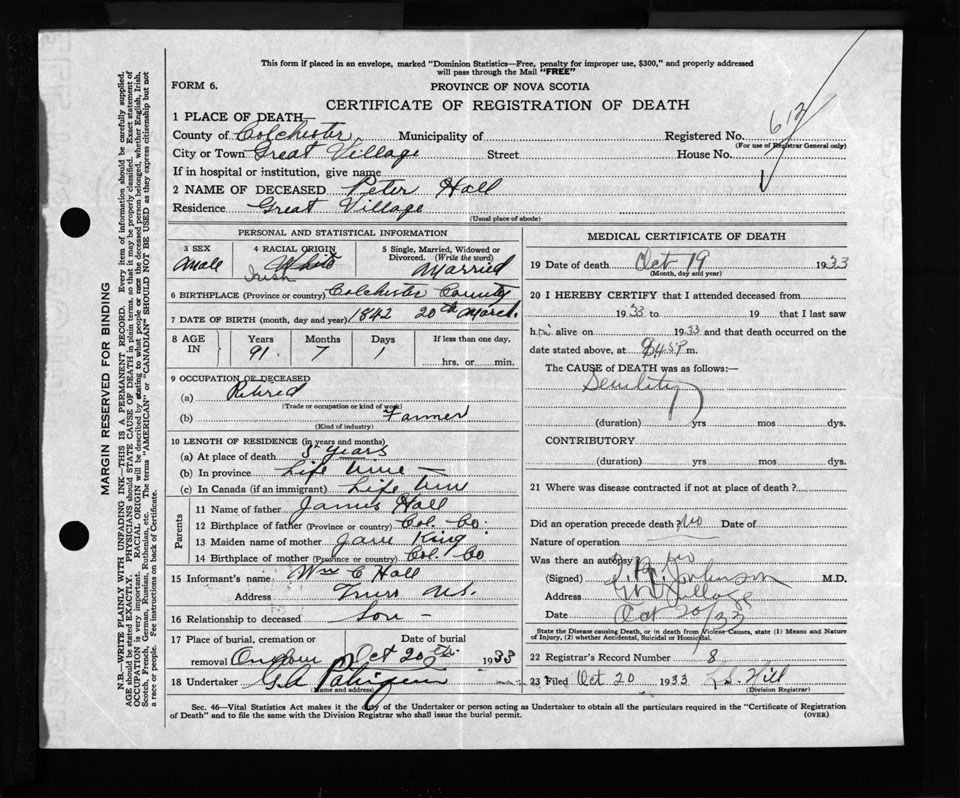 This form if placed in an envelope, marked "Dominion Statistics—Free, penalty for improper use, $300," and properly addressed
will pass through the Mail "FREE"
FORM 6.
PROVINCE OF NOVA SCOTIA
CERTIFICATE OF REGISTRATION OF DEATH
1 PLACE OF DEATH—
County of Colchester Municipality of Registered No. 612
(For use of Registrar General only)
City or Town Great Village Street House No.
If in hospital or institution, give name
2 NAME OF DECEASED Peter Hall
Residence Great Village
(Usual place of abode)
PERSONAL AND STATISTICAL INFORMATION
3 SEX 4 RACIAL ORIGIN 5 Single, Married, Widowed or
Divorced. (Write the word)
Male White Married
Irish
6 BIRTHPLACE (Province or country) Colchester County
7 DATE OF BIRTH (month, day and year) 1842 20th March.
8 AGE IN Years Months Days If less than one day,
91 7 1 hrs. or min.
9 OCCUPATION OF DECEASED
(a) Retired
(Trade or occupation or kind of work)
(b) Farmer
(Kind of industry)
10 LENGTH OF RESIDENCE (in years and months)
(a) At place of death years
(b) In province Life time —
(c) In Canada (if an immigrant) Life time
Parents
11 Name of father James Hall
12 Birthplace of father (Province or country) Col. Co.
13 Maiden name of mother Jane King
14 Birthplace of mother (Province or country) Col. Co
15 Informant's name Wm C Hall
Address Truro N.S.
16 Relationship to deceased Son —
17 Place of burial, cremation or Date of burial
removal Onslow Oct 20th 1933
18 Undertaker G.A
(Name and address)
MEDICAL CERTIFICATE OF DEATH
19 Date of death Oct 19 1933
(Month, day and year)
20 I HEREBY CERTIFY that I attended deceased from
1933 to 19 that I last saw
him alive on 1933 and that death occurred on
date stated above, at m.
The CAUSE of DEATH was as follows:—
Senility
(duration) yrs mos dys.
CONTRIBUTORY
(duration) yrs mos dys.
21 Where was disease contracted if not at place of death?
Did an operation precede death? No Date of
Nature of operation
Was there an autopsy No
(Signed) Johnson M.D.
Address Gt Village
Date Oct 20/33
State the Disease causing Death, or in death from Violent Causes, state (1) Means and Nature
of Injury, (2) whether Accidental, Suicidal or Homicidal.
22 Registrar's Record Number 8
23 Filed Oct 20 1933 Hill
(Division Registrar)
Sec. 46—Vital Statistics Act makes it the duty of the Undertaker or person acting as Undertaker to obtain all the particulars required in the "Certificate of Registration
of Death" and to file the same with the Division Registrar who shall issue the burial permit. (OVER)
MARGIN RESERVED FOR BINDING
N.B.—WRITE PLAINLY WITH UNFADING INK—THIS IS A PERMANENT RECORD. Every item of information should be carefully supplied.
AGE should be stated EXACTLY. PHYSICIANS should STATE CAUSE OF DEATH in plain terms, so that it may be properly classified. Exact statement of
OCCUPATION is very important. RACIAL ORIGIN will be described by stating to what people or race the deceased person belonged, whether English, Irish,
Scotch, French, German, Russian, Ruthenian, etc. The terms "AMERICAN" or "CANADIAN" SHOULD NOT BE USED as they express citizenship but not
a race or people. See instructions on back of Certificate.